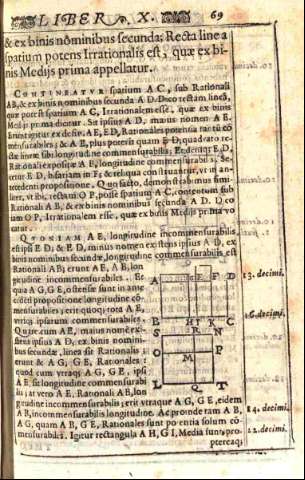 LIBER X. 69
& ex binis nominibus secunda; Recta linea
spatium potens Irrationalis est, quæ ex bi-
nis Medijs prima appellatur.
CONTINEATUR spatium A C, sub Rationali
AB, & ex binis nominibus secunda A D. Dico rectam lineã,
quæ potest spatium A C, Irrationalem esse, quæ ex binis
Medijs prima dicitur. Sit ipsius A D, maius nomen A E.
Erunt igitur ex defin. AE, ED, Rationales potentia tantũ cõ
mensurabiles; & A E, plus poterit quam E D, quadrato re-
ctæ lineæ sibi longitudine commensurabilis; Et denique E D,
Rationali expositæ A F, longitudine commensurabilis. Se-
cetur E D, bifariam in F; & reliqua construantur, vt in an-
tecedenti propositione. Quo facto, demonstrabimus simi-
liter, vt ibi, rectam O P, posse spatium A C, contentum sub
Rationali A B, & ex binis nominibus secunda A D. Dico
iam O P, Irrationalem esse, quæ ex binis Medijs prima vo
catur.
QVONIAM AE, longitudine incommensurabilis
est ipsi E D; & E D, minus nomen existens ipsius A D, ex
binis nominibus secundæ, longitudine commensurabilis est
Rationali AB; erunt AE, AB, lon
gitudine incommensurabiles. Et
quia A G, G E, ostensæ sunt in ante
cedẽti propositione longitudine cõ-
mensurabiles; erit quoq; tota A E,
vtriq; ipsarum commensurabilis:
Quare cum AE, maius nomen exi-
stens ipsius A D, ex binis nomini-
bus secundæ, linea sit Rationalis;
erunt & A G, G E, Rationales:
quod cum vtraq; A G, G E, ipsi
A E, sit longitudine commensurabi
lis; at vero A E, Rationali A B, lon
gitudine incommensurabilis; erit vtraque A G, G E, eidem
A B, incommensurabilis longitudine. Ac proinde tam A B,
A G, quam A B, G E, Rationales sunt potentia solum co-
mensurabiles. Igitur rectangula A H, G I, Media sunt; pro-
pterea q;
13. decimi.
16. decimi.
14. decimi.
22. decimi.
A G E F D
B H I K C
S R N
O M P
L Q T